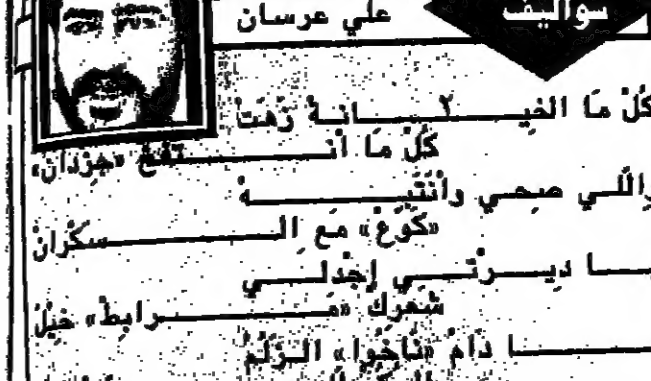 سواليف
علي عرسان
كُلْ مَا الخيـــانةْ زَهَتْ
كُلْ مَا انـــتفَخْ «جِزْدان»
والّلي صحي وأنْتَبَـــهْ
«كَوّعْ» مَع الـــسكْرانْ
ـــا ديـــرْتـــي إجْدلـــي
شَعْرك «مـــرابِطْ» خيْلْ
ـــا دامْ «نَاخُوا» الزّلْمْ